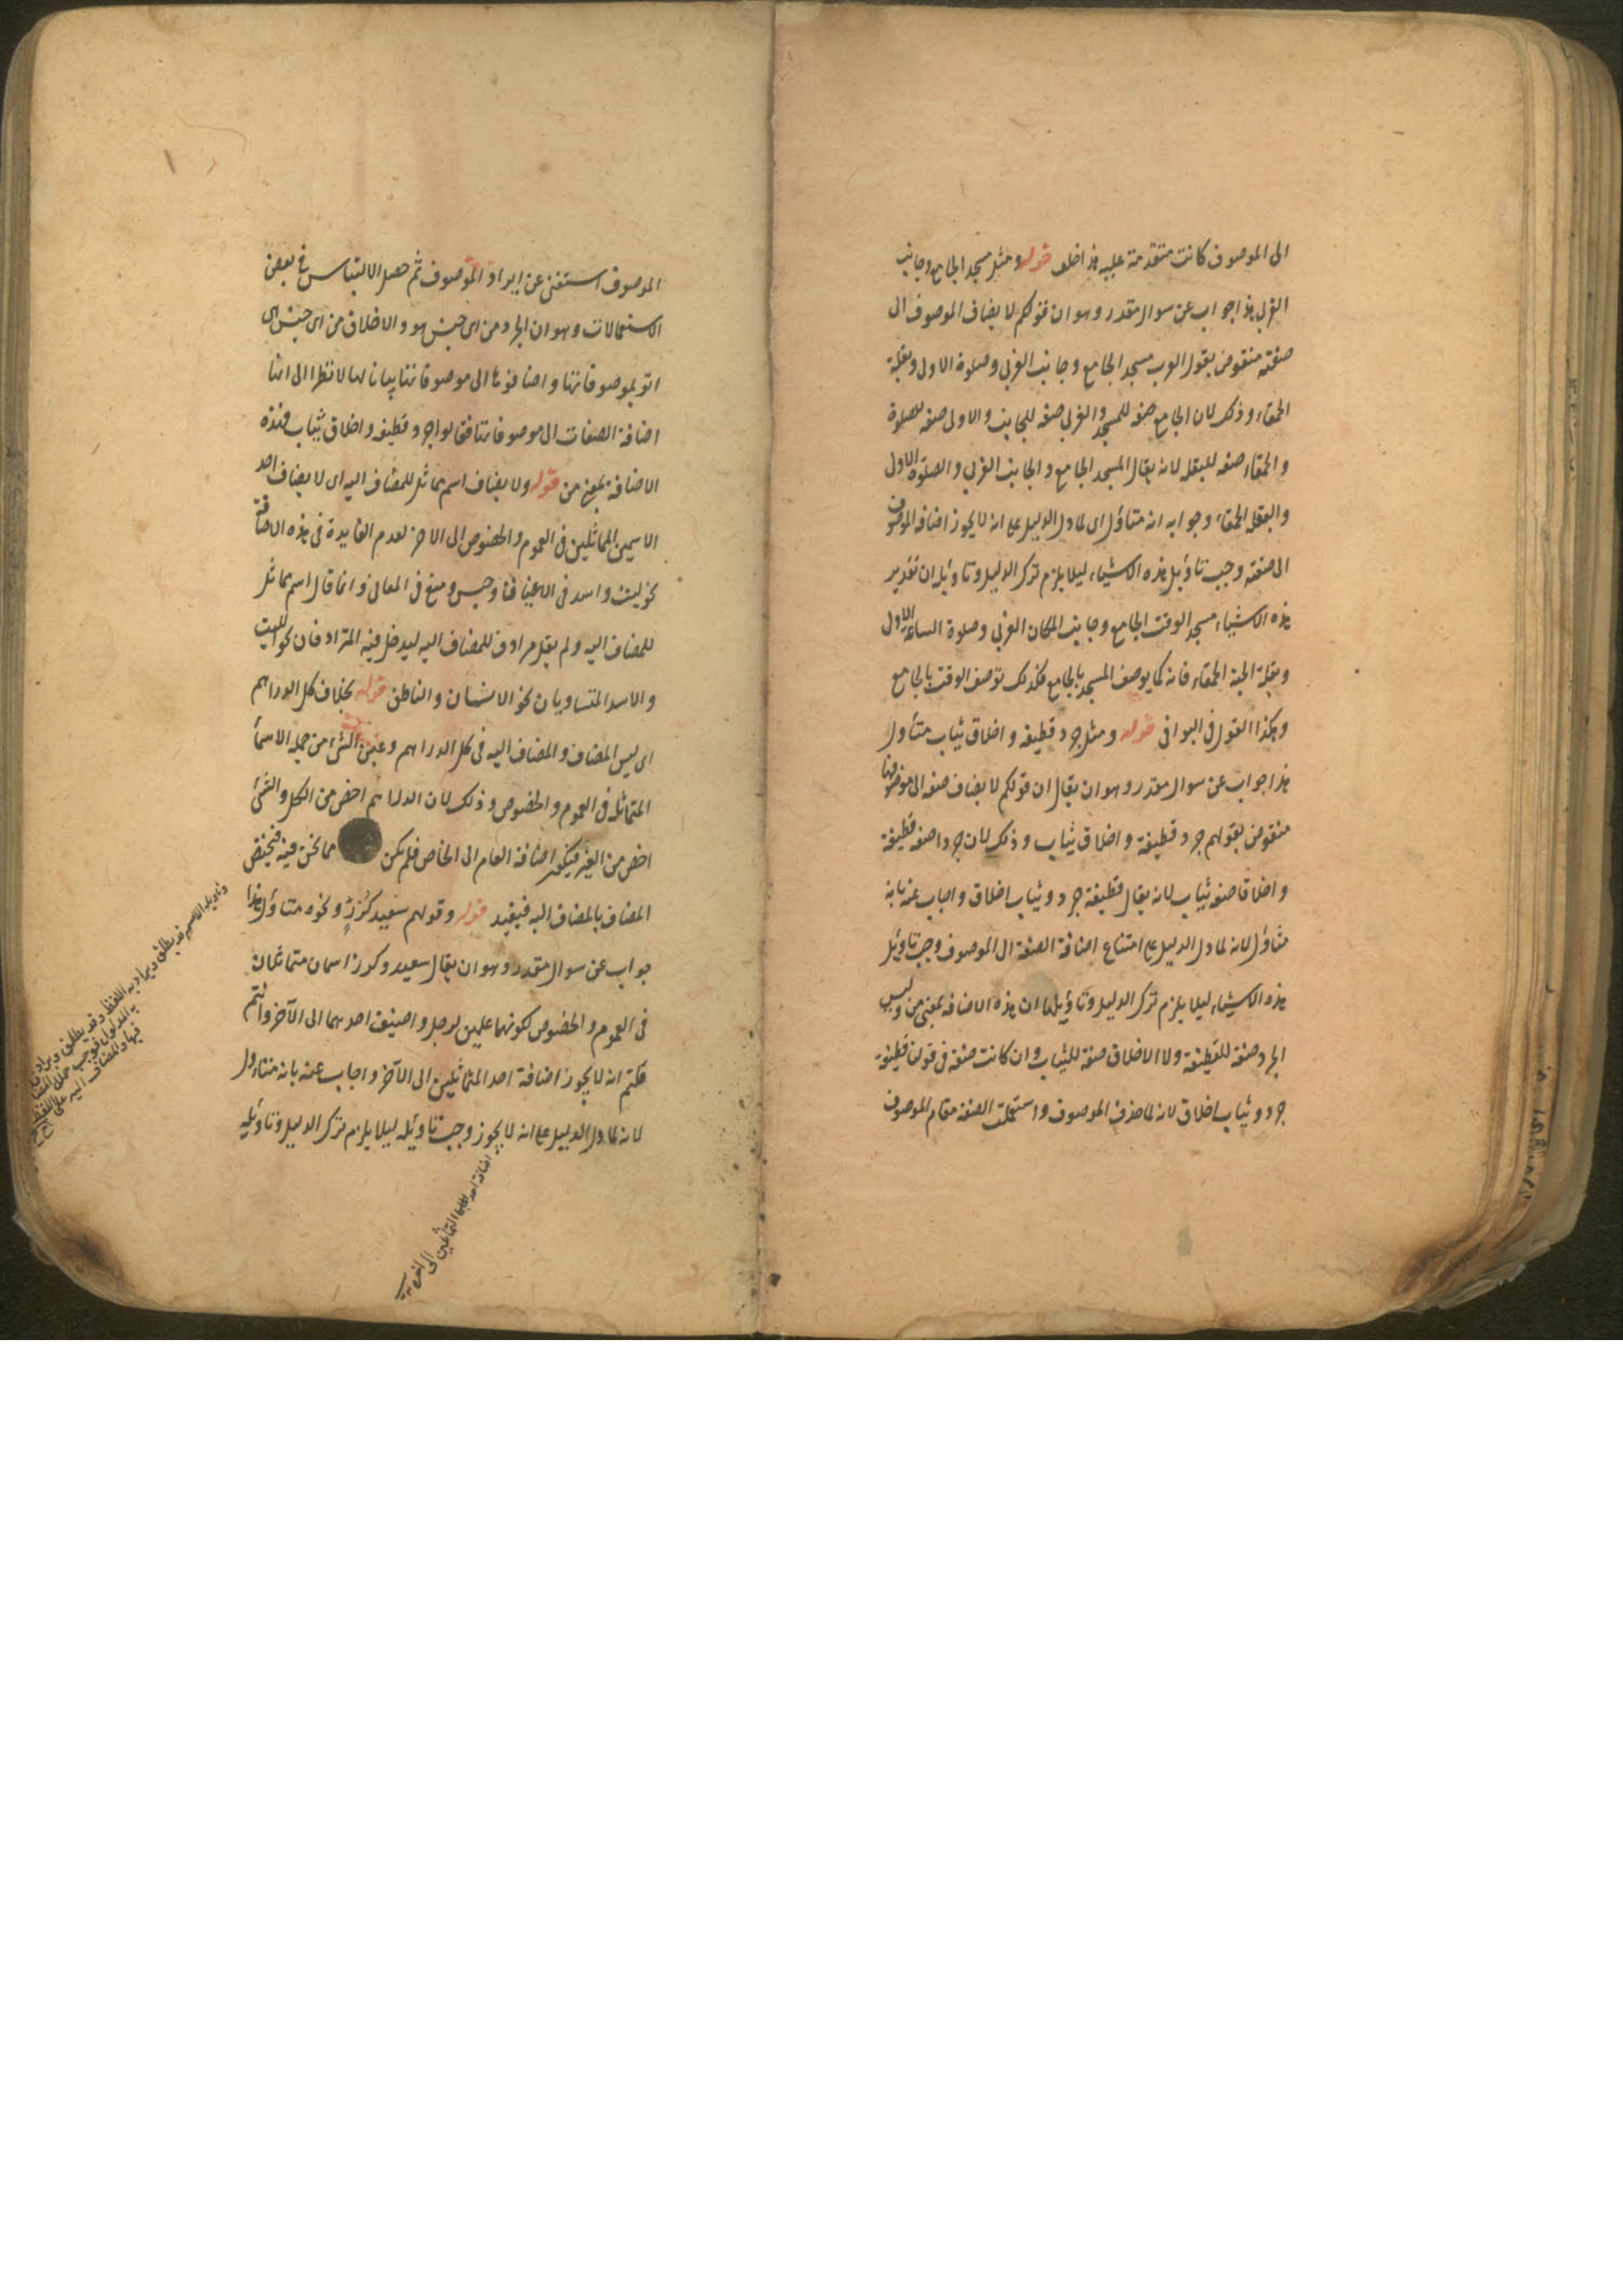 الى الموصوف كانت متقدمة عليه هذا خلف قوله ومثل مسجد الجامع وجانب
الغربى هذا جواب عن سوال مقدر وهو ان قولكم لا يضاف الموصوف الى
صفته منقوض بقول العرب مسجد الجامع وجانب الغربى وصلوة الاولى وبقلة
الحمقاء وذلك لان الجامع صفة للمسجد والغربى صفة للجانب والاولى صفة للصلوة
والحمقاء صفة للبقلة لانه يقال المسجد الجامع والجانب الغربى والصلوة الاولى
والبقلة الحمقاء وجوابه انه متاول اى لما دل الدليل على انه لا يجوز اضافة الموصوف
الى صفته وجب تاويل هذه الاشياء ليلا يلزم ترك الدليل وتاويله ان تقدير
هذه الاشياء مسجد الوقت الجامع وجانب المكان الغربى وصلوة الساعة الاولى
وبقلة الحبة الحمقاء فانه كما يوصف المسجد بالجامع فكذلك توصف الوقت بالجامع
وهكذا القول فى البواقى قوله ومثل جرد قطيفة واخلاق ثياب متأول
هذا جواب عن سوال مقدر وهو ان يقال ان قولكم لا يضاف صفة الى موصوفها
منقوض بقولهم جرد قطيفة واخلاق ثياب وذلك لان جردا صفة قطيفة
واخلاقا صفة ثياب لانه يقال قطيفة جرد وثياب اخلاق واجاب عنه بانه
متأول لانه لما دل الدليل على امتناع اضافة الصفة الى الموصوف وجب تاويل
هذه الاشياء ليلا يلزم ترك الدليل وتاويلها ان هذه الاضافة بمعنى من وليس
الجرد صفة للقطيفة ولا الاخلاق صفة للثياب وان كانت صفة فى قولنا قطيفة
جرد وثياب اخلاق لانه لما حذف الموصوف واستعملت الصفة مقام الموصوف
الموصوف استغنى عن ايراد الموصوف ثم حصل الالتباس فى بعض
الاستعمالات وهو ان الجرد من اى جنس هو والاخلاق من اى جنس هى
اتو بموصوفاتها واضافوها الى موصوفاتها بيانا لها لا نظرا الى انها
اضافة الصفات الى موصوفاتها فقالوا جرد قطيفة واخلاق ثياب فهذه
الاضافة بمعنى من قوله ولا يضاف اسم مماثل للمضاف اليه اى لا يضاف احد
الاسمين المماثلين فى العموم والخصوص الى الاخر لعدم الفايدة فى هذه الاضافة
نحو ليث واسد فى الاعيان وحبس ومنع فى المعانى وانما قال اسم مماثل
للمضاف اليه ولم يقل مرادف للمضاف اليه ليدخل فيه المترادفان نحو الليث
والاسد المتساويان نحو الانسان والناطق قوله بخلاف كل الدراهم
اى ليس المضاف والمضاف اليه فى كل الدراهم وعين الشئ من جملة الاسماء
المتماثلة فى العموم والخصوص وذلك لان الدراهم اخص من الكل والشئ
اخص من العين فيكون اضافة العام الى الخاص فلم يكن مما نحن فيه فيختص
المضاف بالمضاف اليه فيفيد قوله وقولهم سعيد كرز ونحوه متأول هذا
جواب عن سوال مقدر وهو ان يقال سعيد وكرز اسمان متماثلان
فى العموم والخصوص لكونهما علمين لرجل واضيف احدهما الى الآخر وانتم
حكمتم انه لا يجوز اضافة احد المتماثلين الى الآخر واجاب عنه بانه متأول
لانه لما دل الدليل على انه لا يجوز وجب تاويله ليلا يلزم ترك الدليل وتاويله
اضافة احد المتماثلين الى الآخر
وتاويله ان الاسم قد يطلق ويراد به اللفظ وقد يطلق ويراد
به المدلول فوجب حمل المضاف
فيها والمضاف اليه على اللفظ